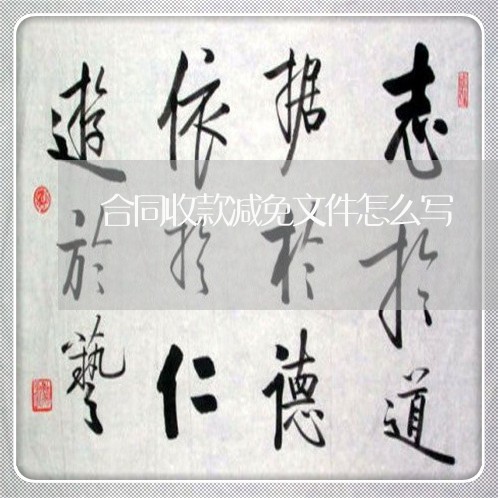 志於道
据於德
依於仁
遊於藝
合同收款减免文件怎么写